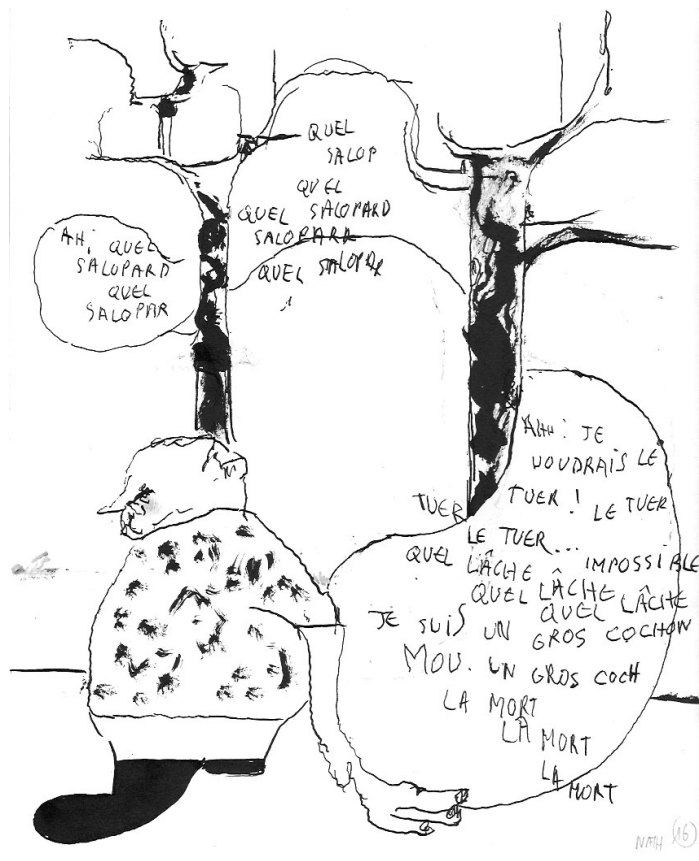 QUEL
SALOP
QUEL
QUEL SALOPARD
SALOPARR
QUEL SALOPAR
AH! QUEL
SALOPARD
QUEL
SALOPAR
AHH! JE
VOUDRAIS LE
TUER TUER! LE TUER
LE TUER...
QUEL LÂCHE IMPOSSIBLE
QUEL LÂCHE
QUEL LÂCHE
JE SUIS UN GROS COCHON
MOU. UN GROS COCH
LA MORT
LA MORT
LA MORT
16